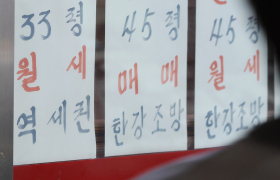 33 평
월 세
역세권
45 평
매 매
한강조망
45 평
월 세
한강조망